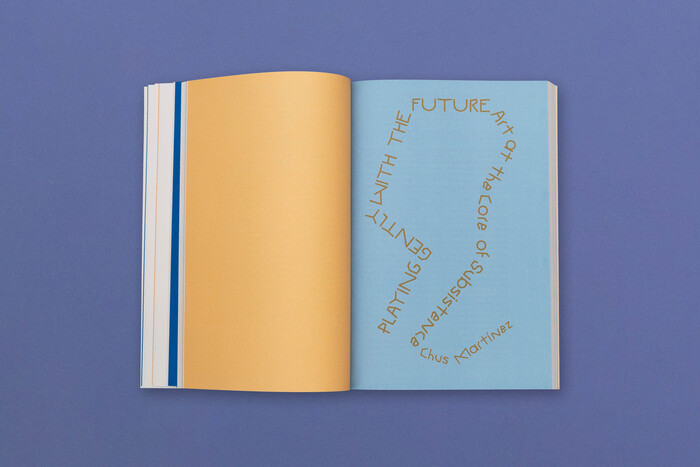 PLAYING GENTLY WITH THE FUTURE
Art at the Core of Subsistence
Chus Martínez